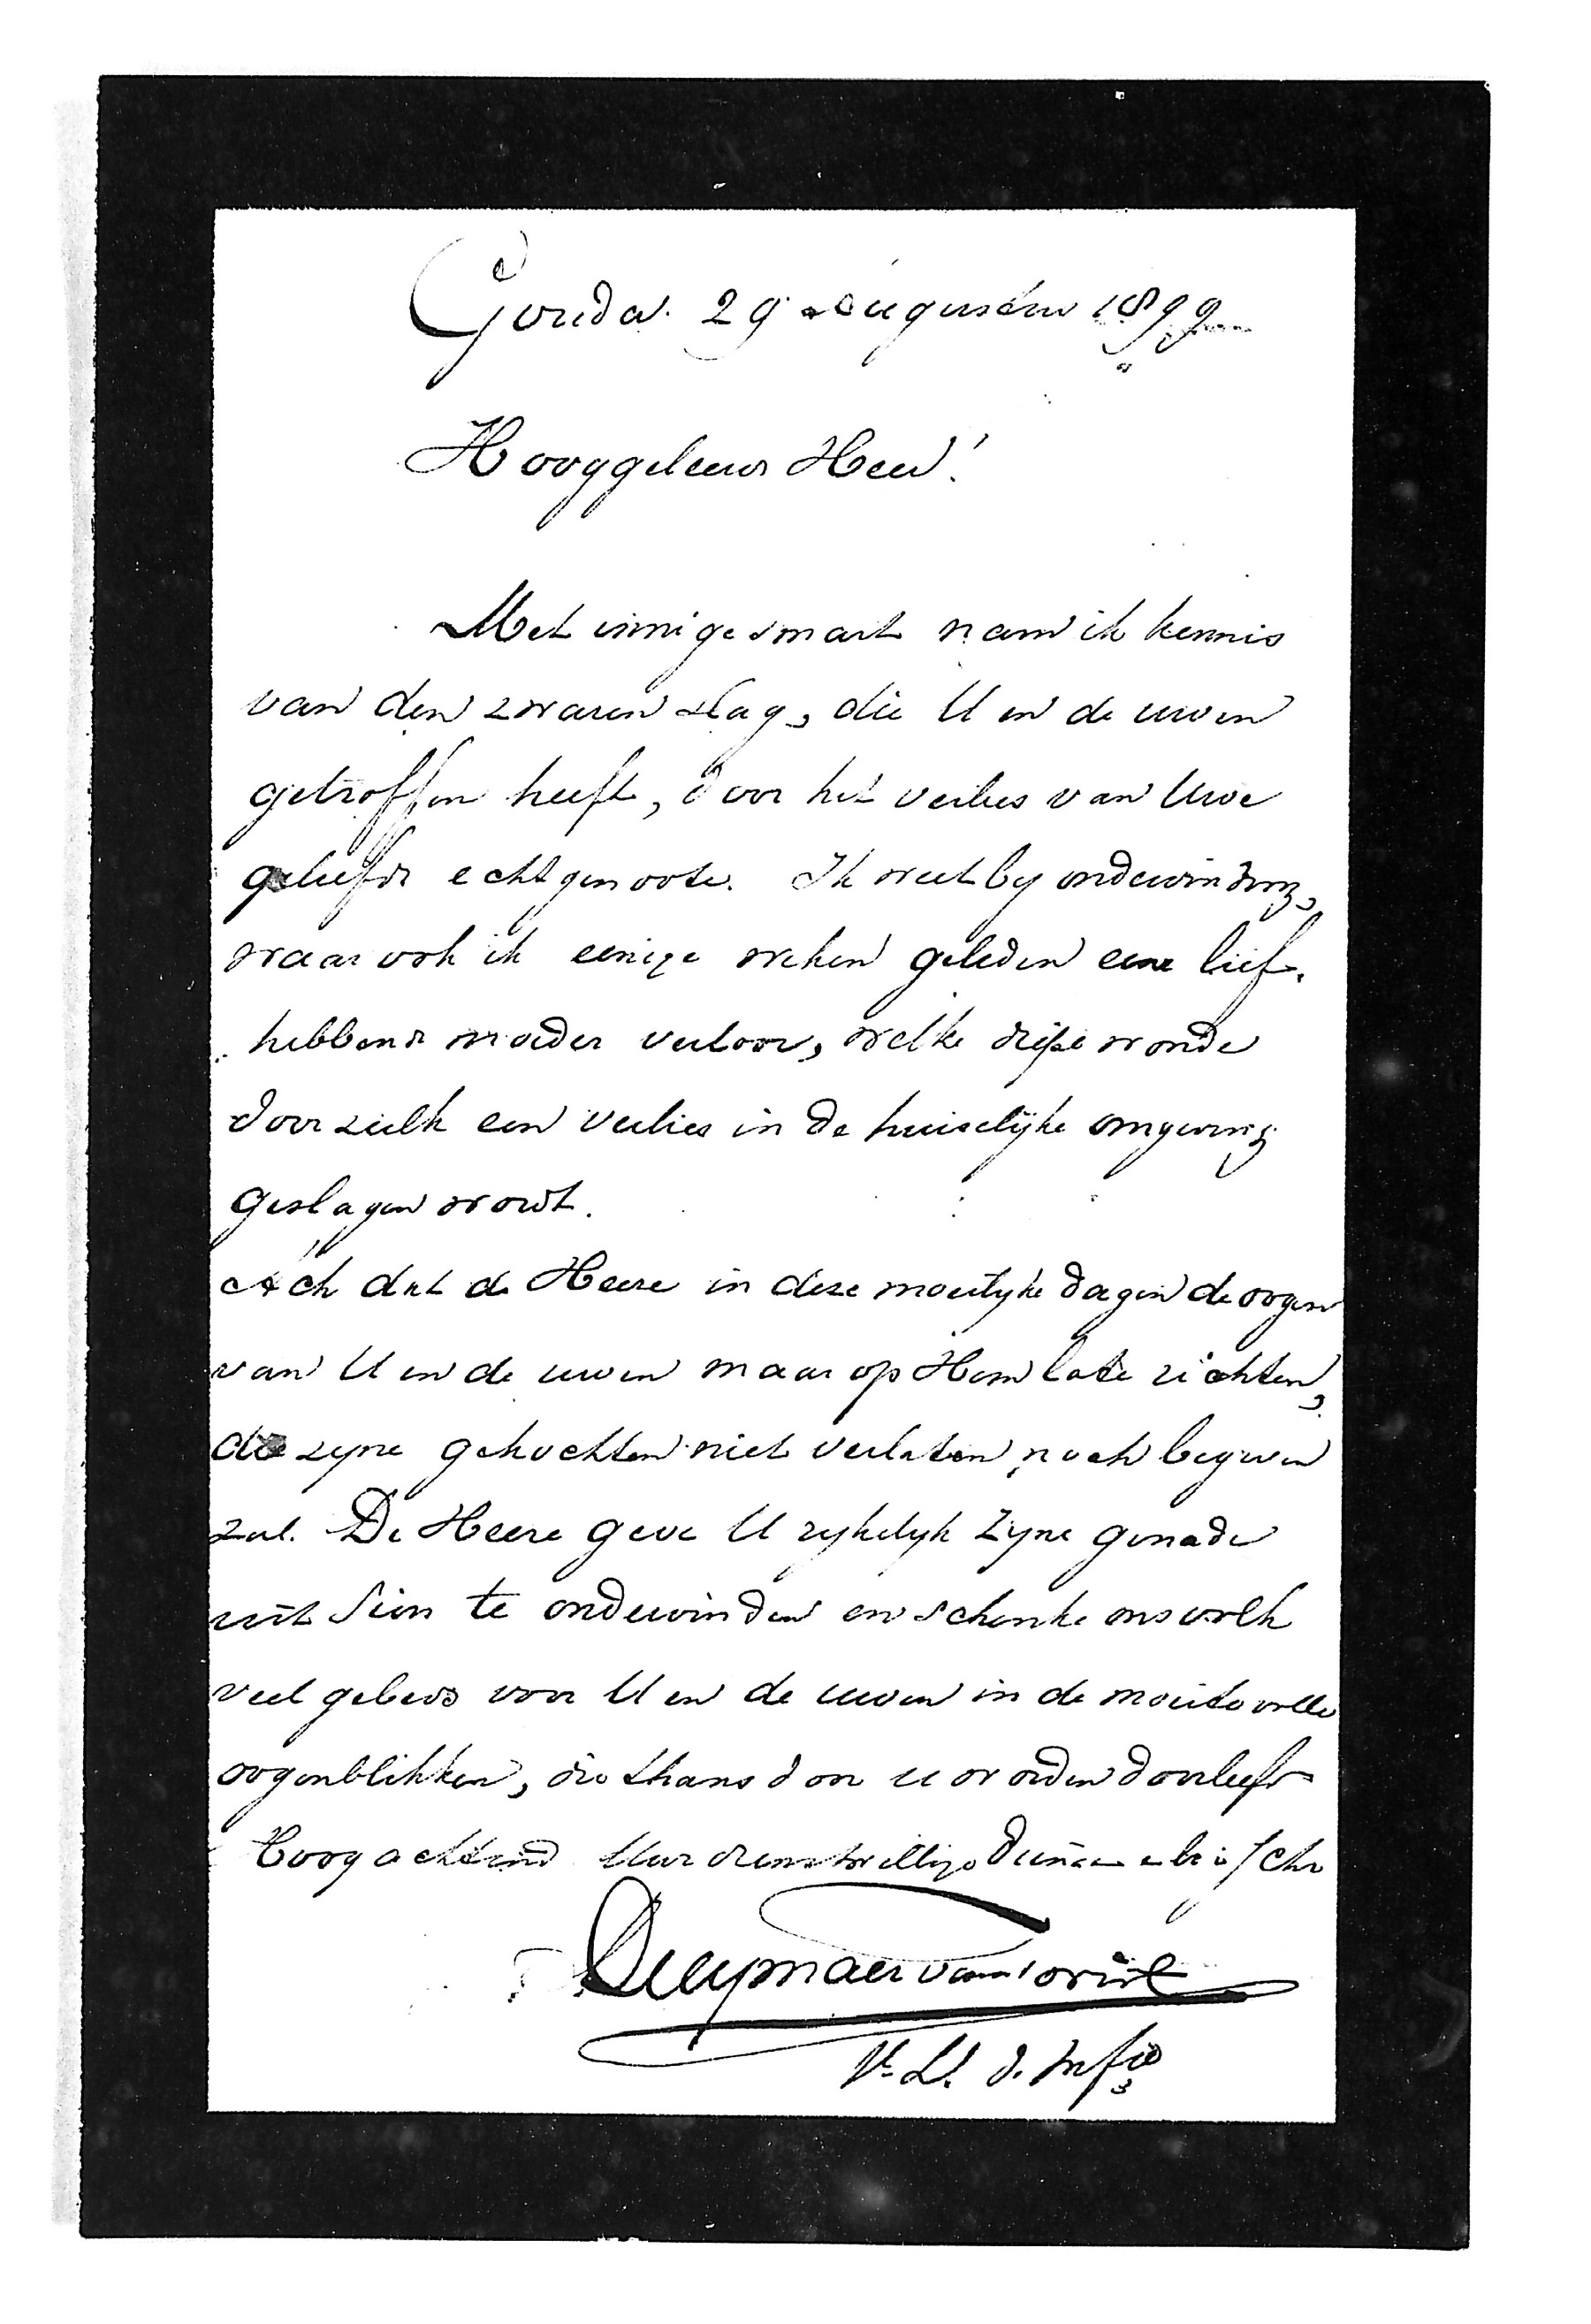 Gouda. 29 Augustus 1899
Hooggeleerde Heer!
Met innige smart nam ik kennis
van den zwaren slag, die U en de uwen
getroffen heeft, door het verlies van Uwe
geliefde echtgenoote. Ik weet by ondervinding,
waar ook ik eenige weken geleden eene lief-
hebbende moeder verloor, welke diepe wonde
door zulk een verlies in de huiselijke omgeving
geslagen wordt.
Ach dat de Heere in deze moeilyke dagen de oogen
van U en de uwen maar op Hem late richten,
die zyne gekochten niet verlaten noch begeven
zal. De Heere geve U rykelyk Zyne genade
uit Sion te ondervinden en schenke ons volk
veel gebeds voor U en de uwen in de moeitevolle
oogenblikken, die thans door u worden doorleefd
Hoogachtend Uw dienstwillige Dienaar
van
d. Inf